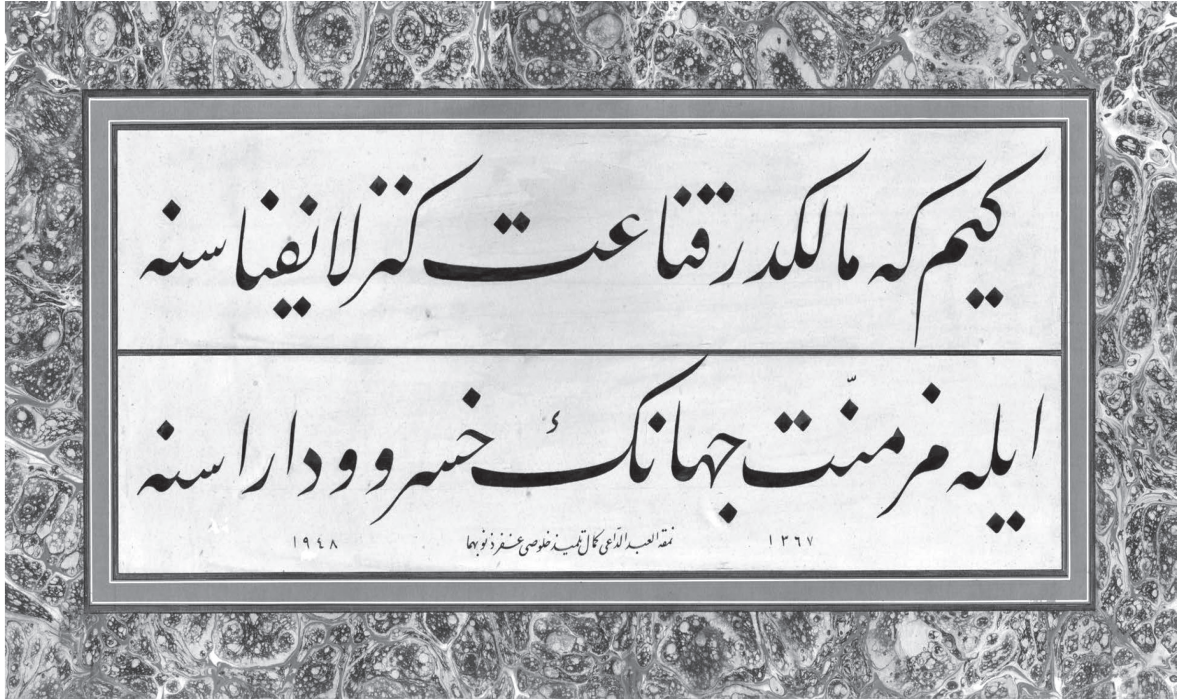 كيم كه مالكدر قناعت كنز لايفناسنه
ايله مز منّت جهانك خسرو و داراسنه
١٣٦٧ نمقه العبد الدّاعي كمال تلميذ خلوصي غفر ذنوبهما ١٩٤٨